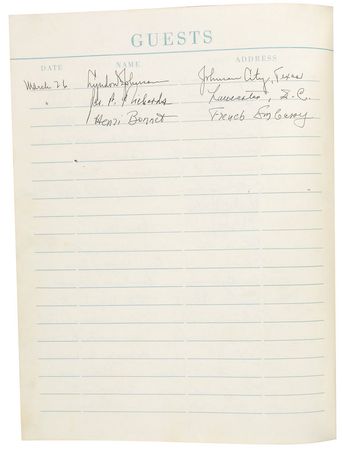 GUESTS
DATE NAME ADDRESS
March 26 Lyndon Johnson Johnson City, Texas
" J. P. Richards Lancaster, S.C.
Henri Bonnet French Embassy